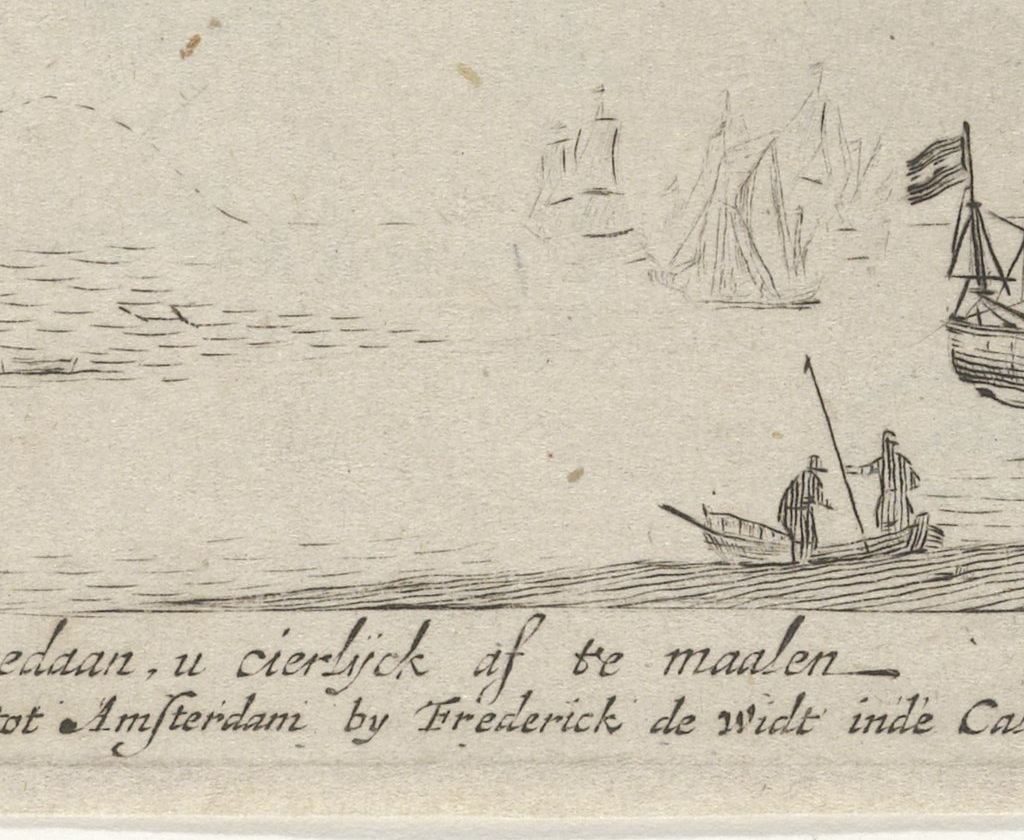 edaan, u cierlÿck af te maalen
tot Amsterdam by Frederick de Widt inde Ca